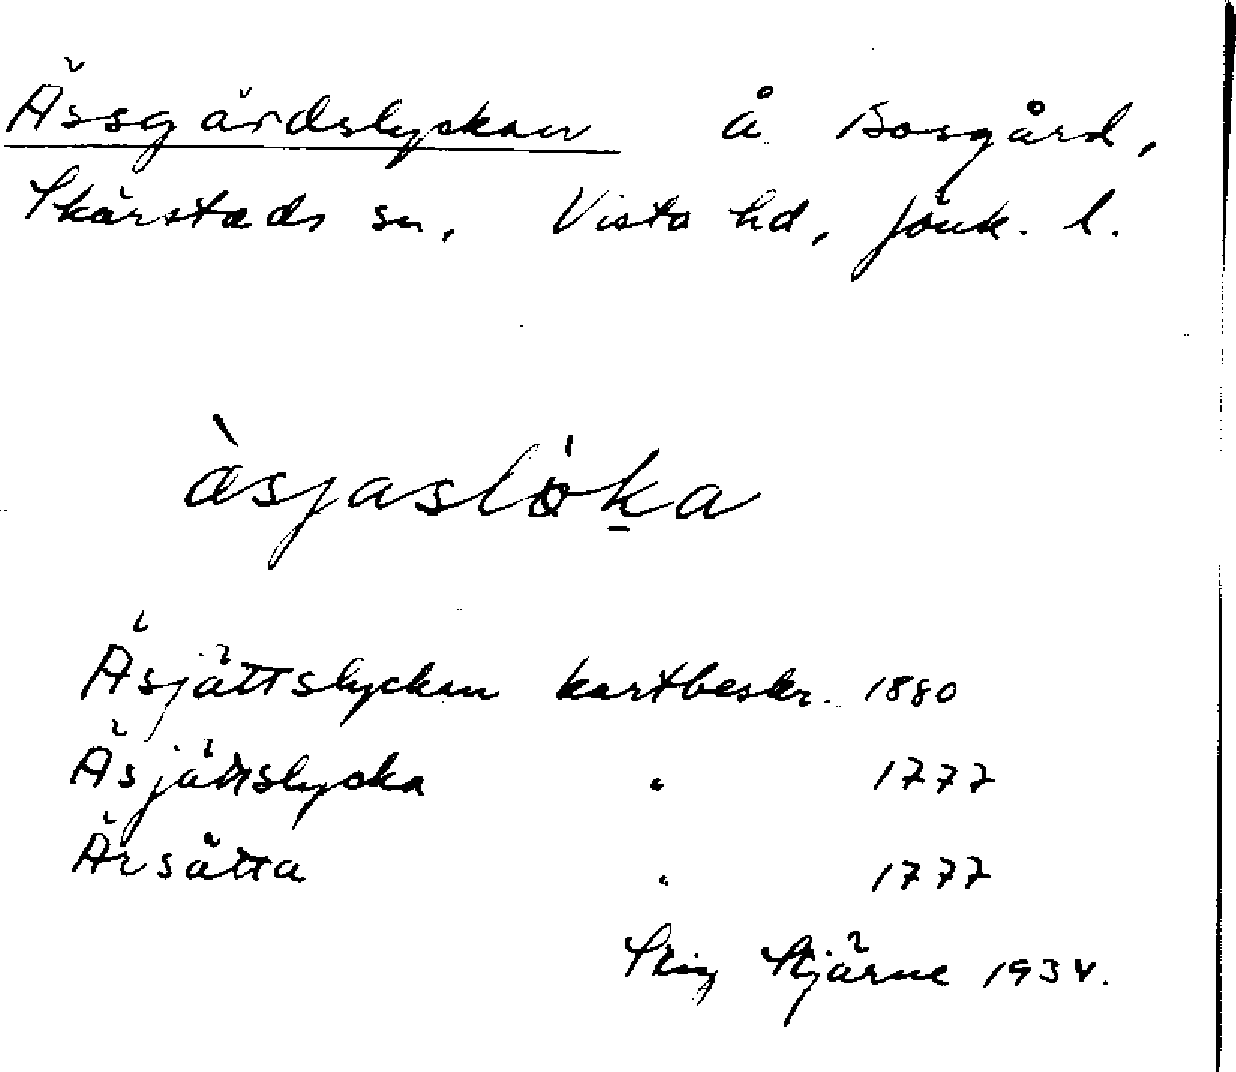 Ässgärdslyckan å Bosgård,
Skärstads sn, Vista hd, Jönk. l.
àsjaslöka
Äsjättslyckan kartbeskr. 1880
Äsjättslycka " 1777
Ärsätta " 1777
Stig Stjärne 1934.